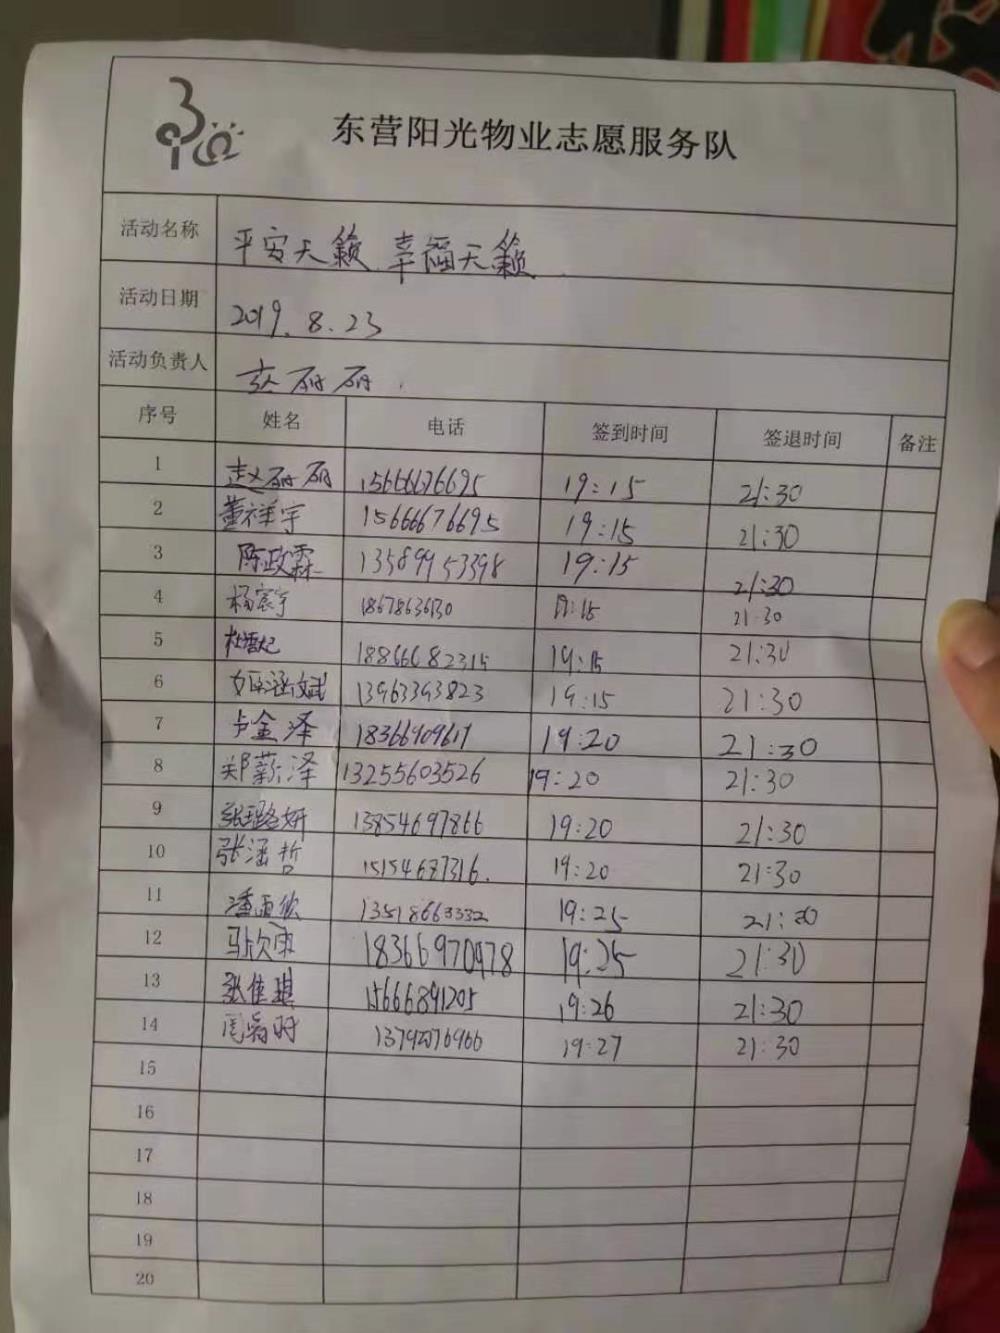 东营阳光物业志愿服务队
活动名称 平安天籁 幸福天籁
活动日期 2019.8.23
活动负责人 赵丽丽
序号 姓名 电话 签到时间 签退时间 备注
1 赵丽丽 15666676695 19:15 21:30
2 董祥宇 15666676695 19:15 21:30
3 陈政霖 13589953398 19:15 21:30
4 杨宸宇 19:15 21:30
5 18866682315 19:15 21:30
6 13963393823 19:15 21:30
7 卢金泽 18366909617 19:20 21:30
8 郑薪泽 13255603526 19:20 21:30
9 张璐妍 13854697866 19:20 21:30
10 张涵哲 15154687316. 19:20 21:30
11 13518663332 19:25 21:30
12 马欣雨 18366970978 19:25 21:30
13 张佳琪 15666891205 19:26 21:30
14 13792076966 19:27 21:30
15
16
17
18
19
20